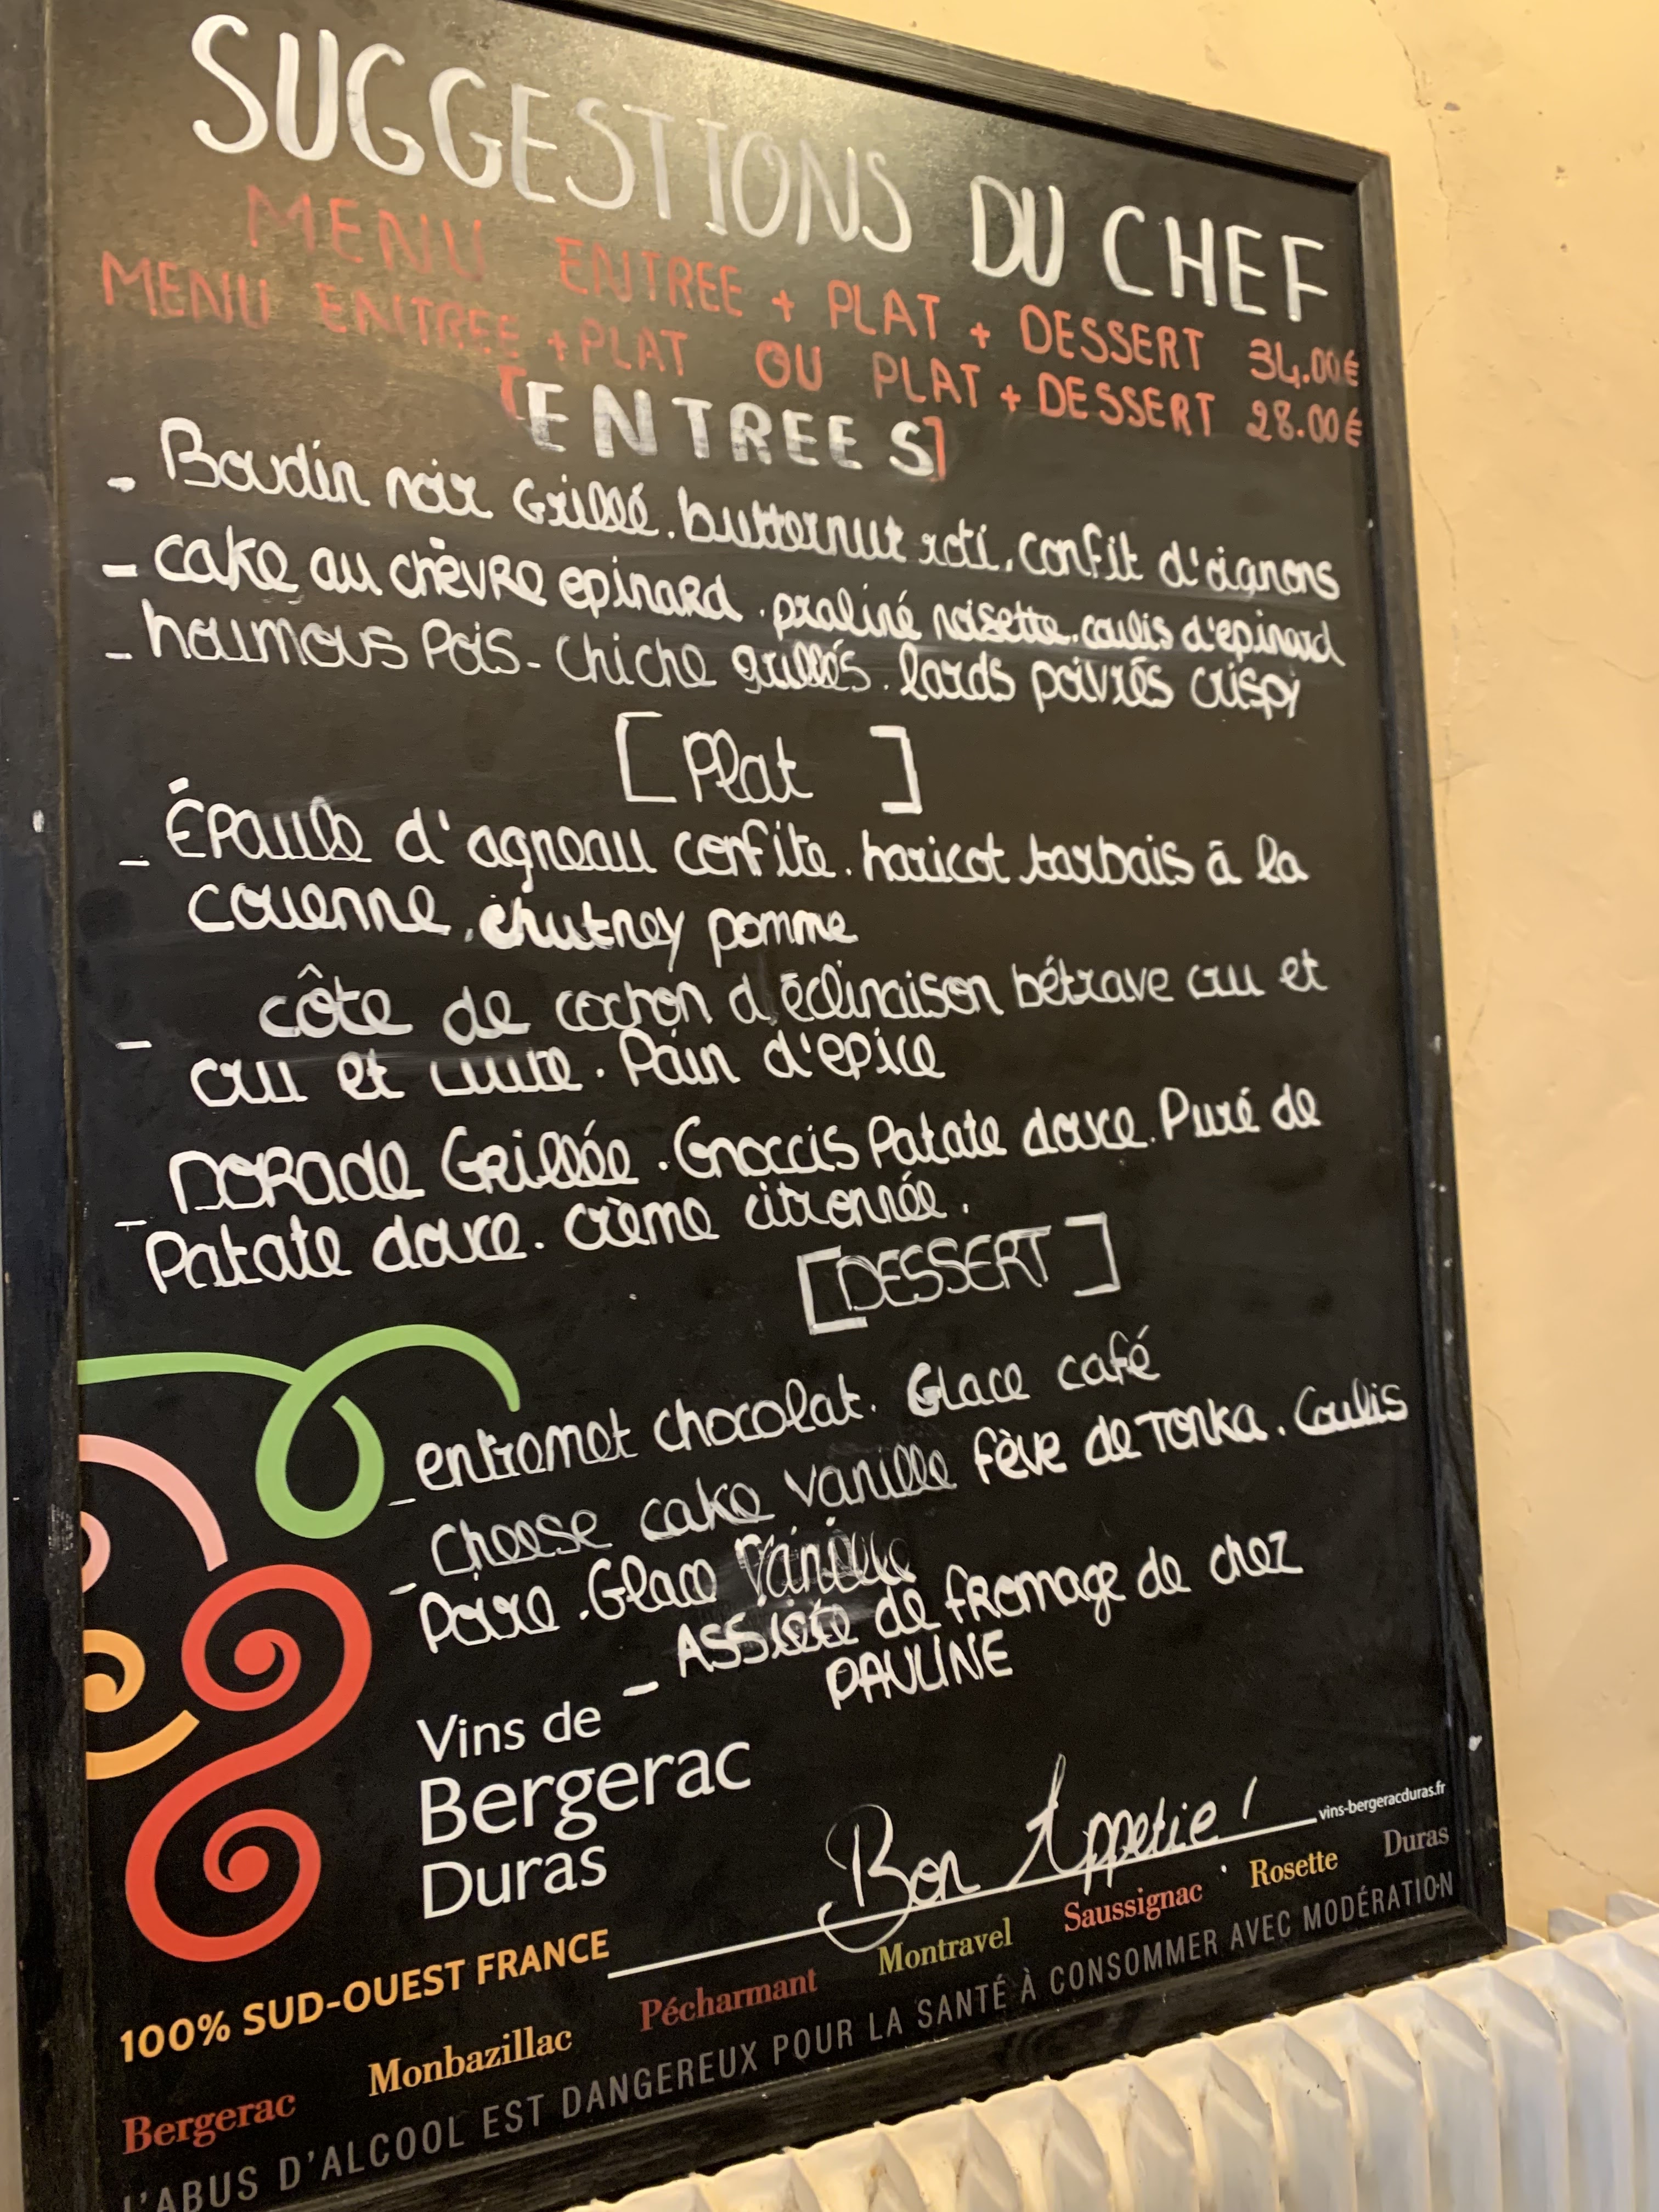 SUGGESTIONS DU CHEF
MENU ENTREE + PLAT + DESSERT 34.00€
MENU ENTREE + PLAT OU PLAT + DESSERT 28.00€
[ENTREES]
- Boudin noir Grillé. butternut roti. confit d'oignons
- cake au chèvre epinard. praliné noisette. coulis d'epinard
- houmous Pois-chiche grillés. lards poivrés crispy
[Plat]
- Épaule d'agneau confite. haricot tarbais à la
couenne. chutney pomme
- côte de cochon d'éclinaison bétrave cru et
cru et cuite. Pain d'epice
- DORADE Grillée. Gnoccis Patate douce. Puré de
Patate douce. crème citronnée.
[DESSERT]
- entremet chocolat. Glace café
- Cheese cake vanille fève de TONKA. Coulis
Poire. Glace Vanille
- ASSiete de fromage de chez
PAULINE
Vins de
Bergerac
Duras
Bon Appetie !
vins-bergeracduras.fr
100% SUD-OUEST FRANCE
Bergerac Monbazillac Pécharmant Montravel Saussignac Rosette Duras
L'ABUS D'ALCOOL EST DANGEREUX POUR LA SANTÉ À CONSOMMER AVEC MODÉRATION